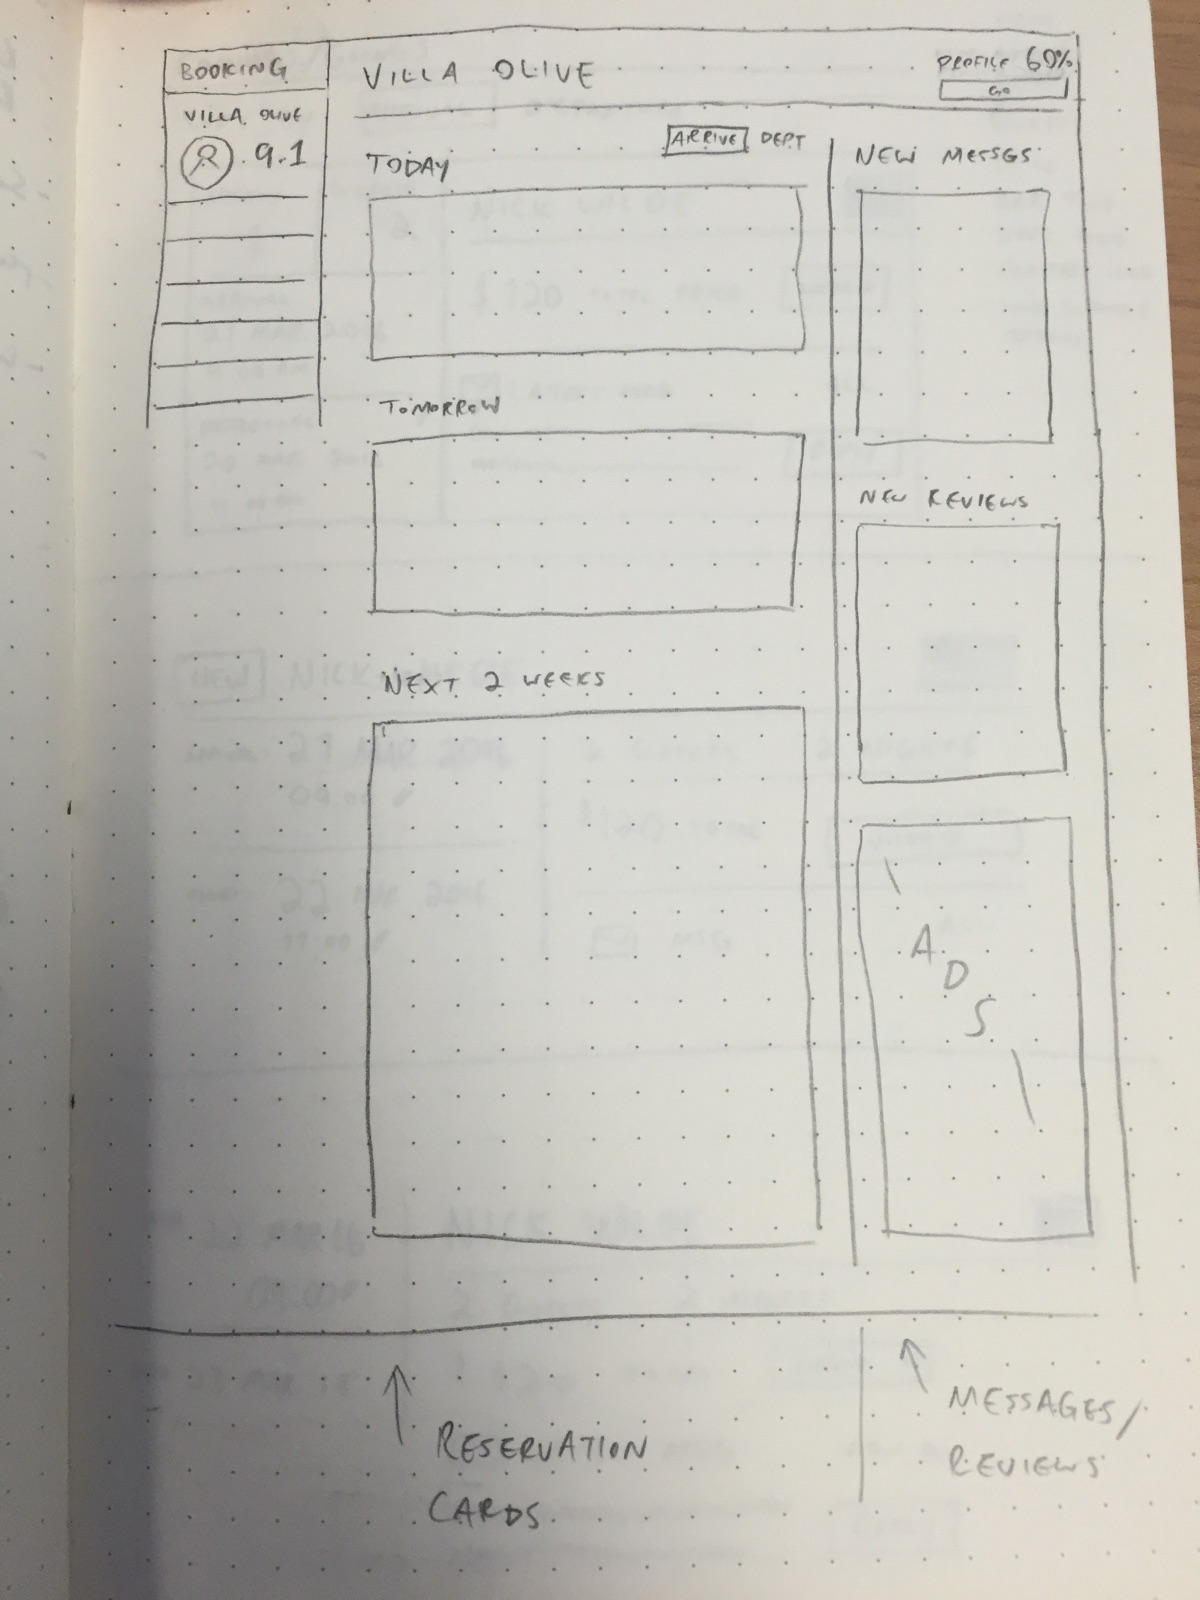 BOOKING
VILLA OLIVE
9.1
VILLA OLIVE
PROFILE 60%
GO
TODAY
ARRIVE DEPT
TOMORROW
NEXT 2 WEEKS
NEW MESSGS
NEW REVIEWS
ADS
RESERVATION
CARDS.
MESSAGES/
REVIEWS